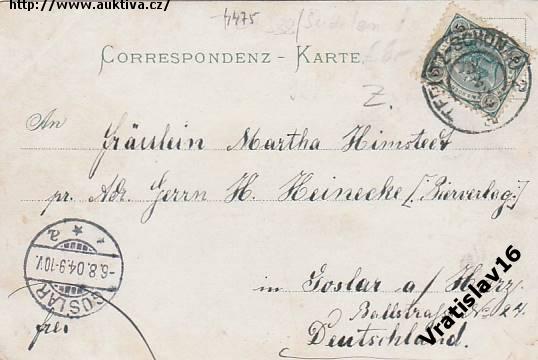 http://www.auktiva.cz/
4475
CORRESPONDENZ - KARTE.
Z.
An
Fräulein Martha Himstedt
pr. Adr. Herrn H. Heinecke [Bierverlag.]
in Goslar a/Harz.
Ballstraße No 24.
Deutschland.
frei
GOSLAR
6.8.04.9-10V.
* a.
Vratislav16